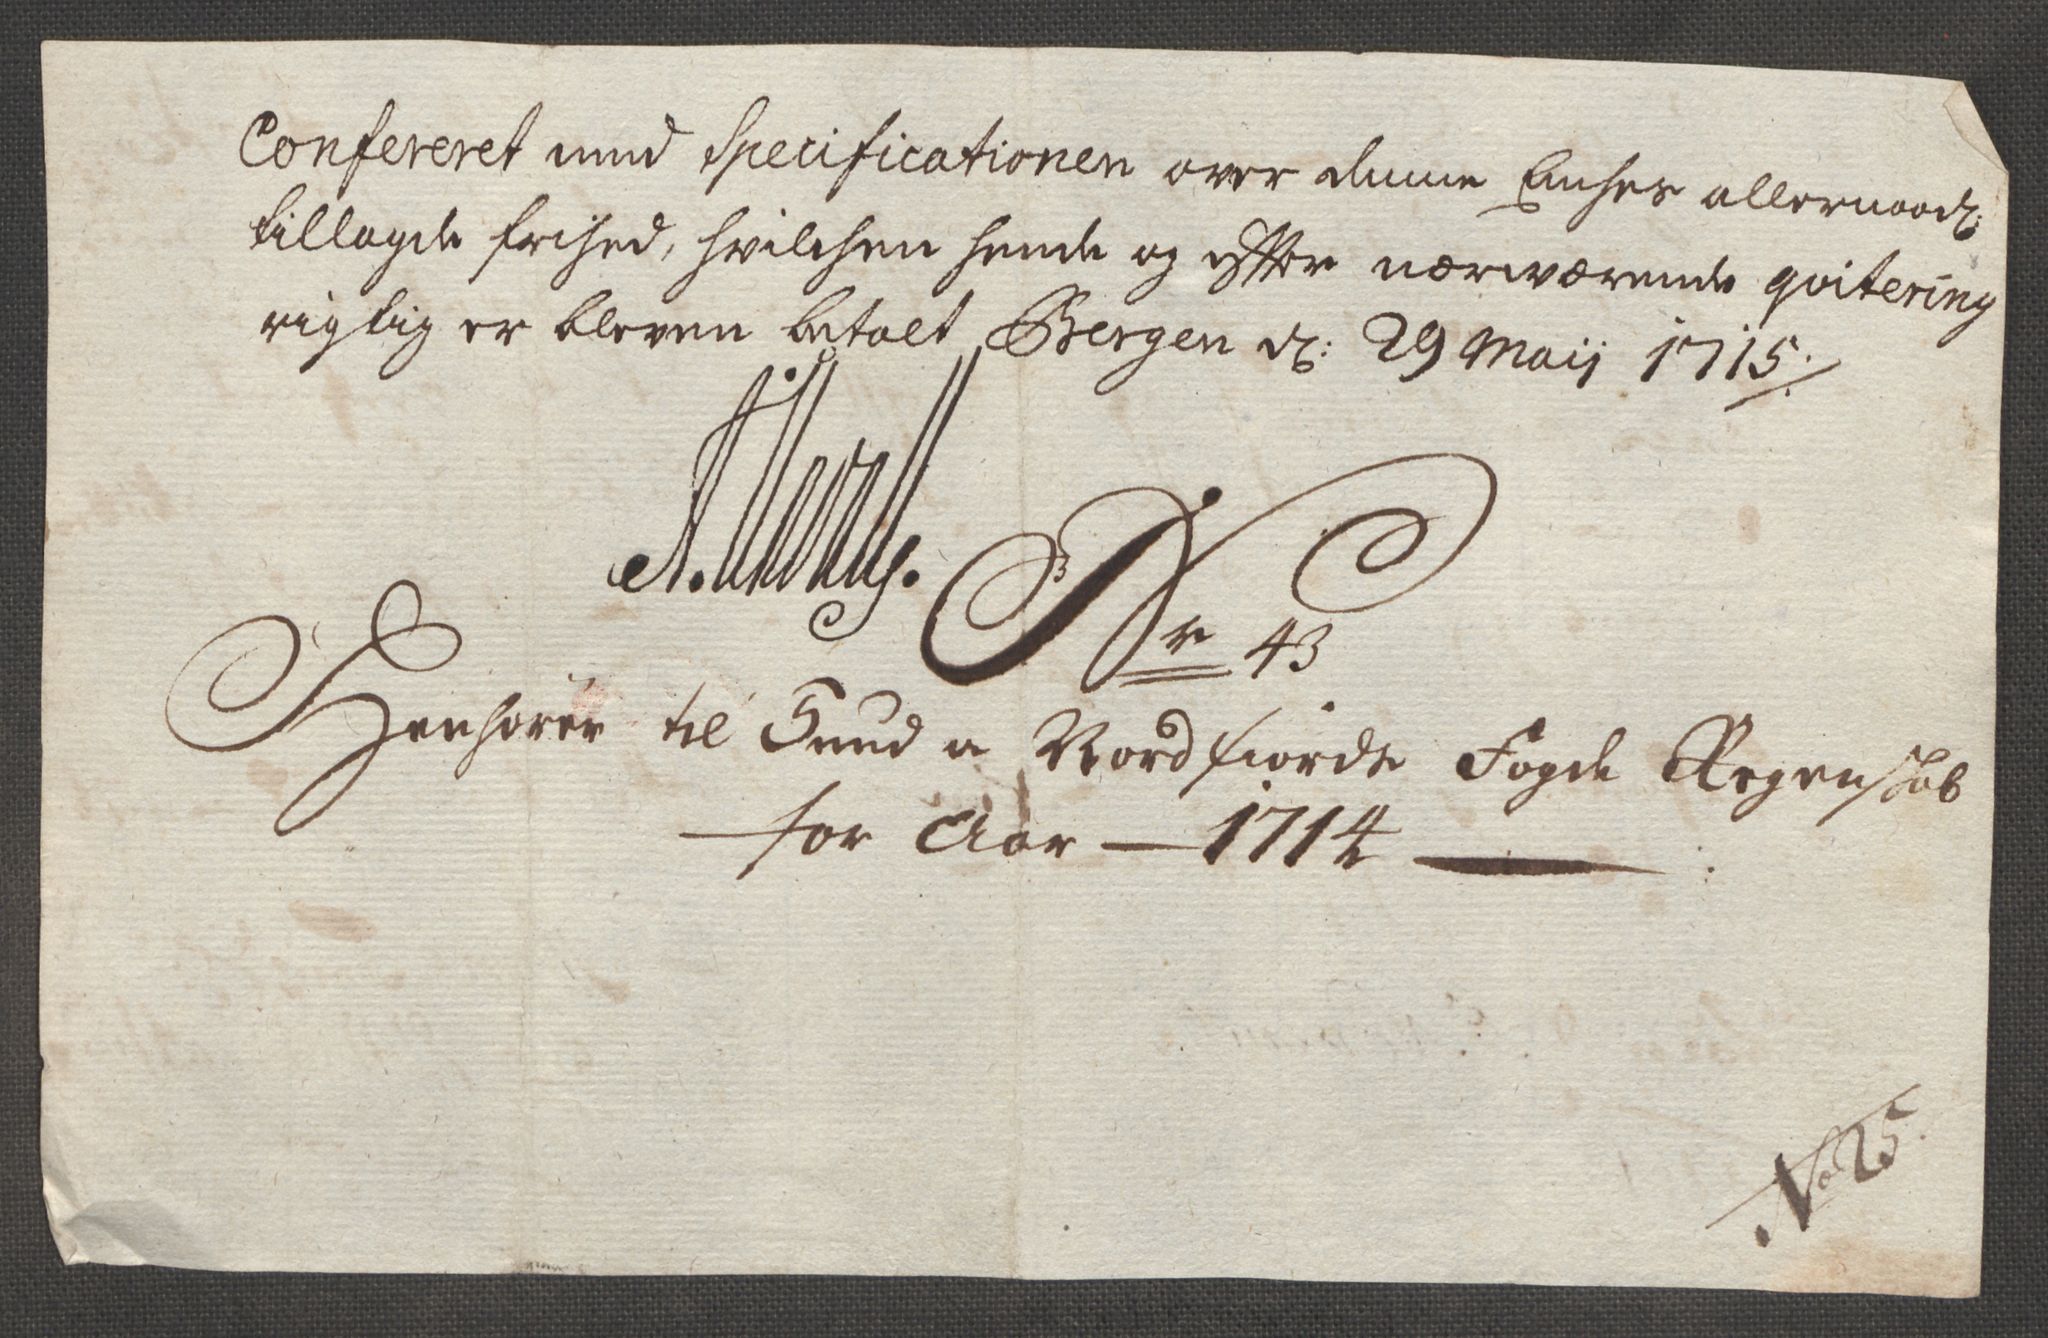 Confereret med Specificationen over denne Enches allernaad:
tillagde frihed, hvilchen hende og effter nærwærende qvitering
rigtig er bleven betalt Bergen d: 29 Maij 1715.
No 43
Henhører til Sund- og Nordfiords Fogde Regenskab
for Aar 1714
No 25